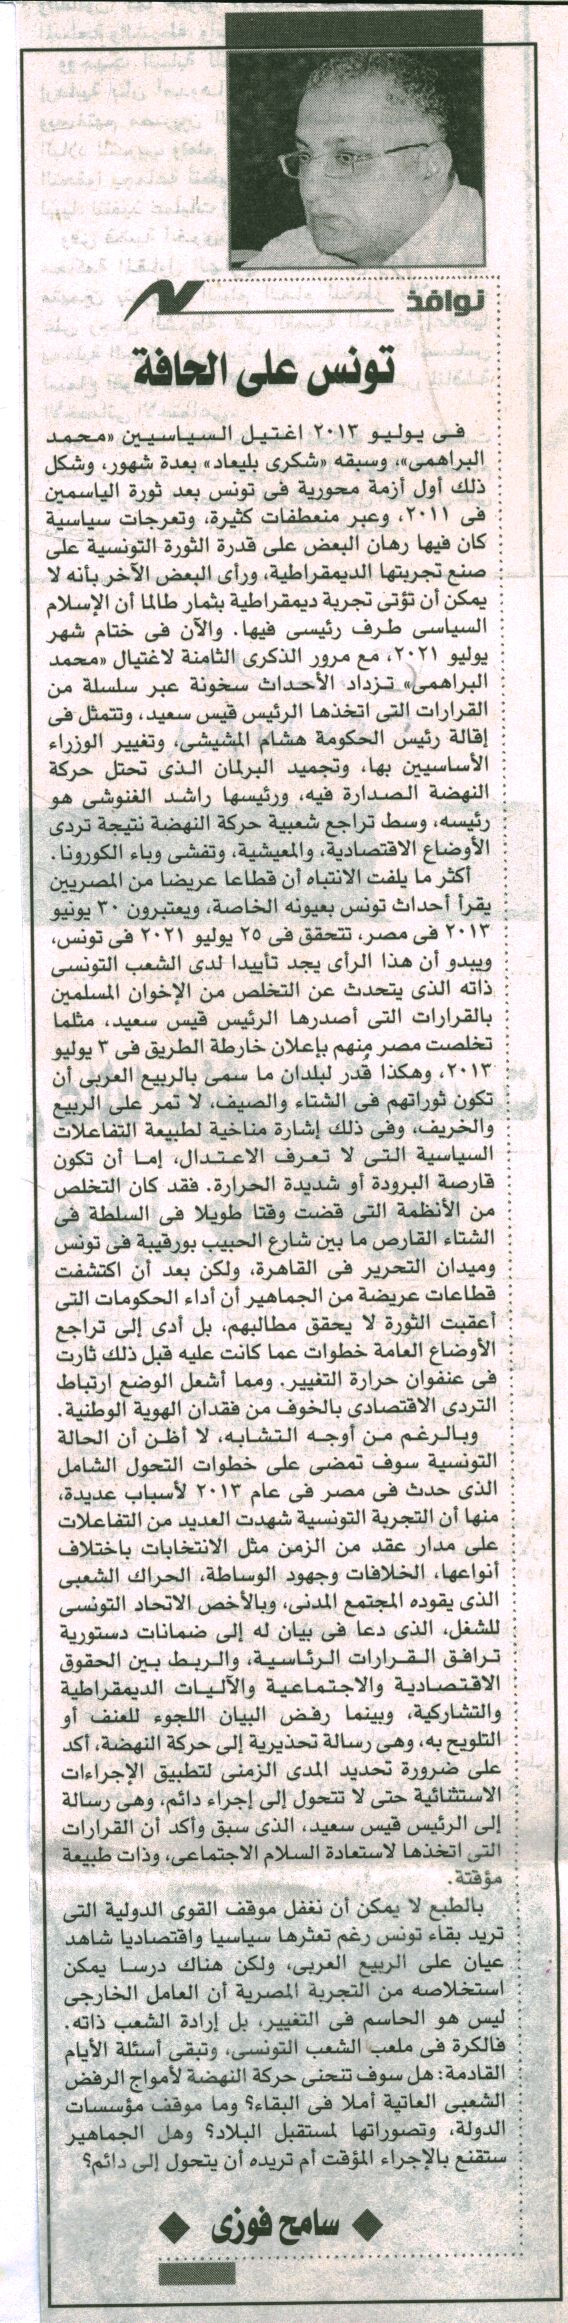 نوافذ
تونس على الحافة
فى يوليو ٢٠١٣ اغتيل السياسيين «محمد
البراهمى»، وسبقه «شكرى بليعاد» بعدة شهور، وشكل
ذلك أول أزمة محورية فى تونس بعد ثورة الياسمين
فى ٢٠١١، وعبر منعطفات كثيرة، وتعرجات سياسية
كان فيها رهان البعض على قدرة الثورة التونسية على
صنع تجربتها الديمقراطية، ورأى البعض الآخر بأنه لا
يمكن أن تؤتى تجربة ديمقراطية بثمار طالما أن الإسلام
السياسى طرف رئيسى فيها. والآن فى ختام شهر
يوليو ٢٠٢١، مع مرور الذكرى الثامنة لاغتيال «محمد
البراهمى» تزداد الأحداث سخونة عبر سلسلة من
القرارات التى اتخذها الرئيس قيس سعيد، وتتمثل فى
إقالة رئيس الحكومة هشام المشيشى، وتغيير الوزراء
الأساسيين بها، وتجميد البرلمان الذى تحتل حركة
النهضة الصدارة فيه، ورئيسها راشد الغنوشى هو
رئيسه، وسط تراجع شعبية حركة النهضة نتيجة تردى
الأوضاع الاقتصادية، والمعيشية، وتفشى وباء الكورونا.
أكثر ما يلفت الانتباه أن قطاعا عريضا من المصريين
يقرأ أحداث تونس بعيونه الخاصة، ويعتبرون ٣٠ يونيو
٢٠١٣ فى مصر، تتحقق فى ٢٥ يوليو ٢٠٢١ فى تونس،
ويبدو أن هذا الرأى يجد تأييدا لدى الشعب التونسى
ذاته الذى يتحدث عن التخلص من الإخوان المسلمين
بالقرارات التى أصدرها الرئيس قيس سعيد، مثلما
تخلصت مصر منهم بإعلان خارطة الطريق فى ٣ يوليو
٢٠١٣، وهكذا قُدر لبلدان ما سمى بالربيع العربى أن
تكون ثوراتهم فى الشتاء والصيف، لا تمر على الربيع
والخريف، وفى ذلك إشارة مناخية لطبيعة التفاعلات
السياسية التى لا تعرف الاعتدال، إما أن تكون
قارصة البرودة أو شديدة الحرارة. فقد كان التخلص
من الأنظمة التى قضت وقتا طويلا فى السلطة فى
الشتاء القارص ما بين شارع الحبيب بورقيبة فى تونس
وميدان التحرير فى القاهرة، ولكن بعد أن اكتشفت
قطاعات عريضة من الجماهير أن أداء الحكومات التى
أعقبت الثورة لا يحقق مطالبهم، بل أدى إلى تراجع
الأوضاع العامة خطوات عما كانت عليه قبل ذلك ثارت
فى عنفوان حرارة التغيير. ومما أشعل الوضع ارتباط
التردى الاقتصادى بالخوف من فقدان الهوية الوطنية.
وبالرغم من أوجه التشابه، لا أظن أن الحالة
التونسية سوف تمضى على خطوات التحول الشامل
الذى حدث فى مصر فى عام ٢٠١٣ لأسباب عديدة،
منها أن التجربة التونسية شهدت العديد من التفاعلات
على مدار عقد من الزمن مثل الانتخابات باختلاف
أنواعها، الخلافات وجهود الوساطة، الحراك الشعبى
الذى يقوده المجتمع المدنى، وبالأخص الاتحاد التونسى
للشغل، الذى دعا فى بيان له إلى ضمانات دستورية
ترافق القرارات الرئاسية، والربط بين الحقوق
الاقتصادية والاجتماعية والآليات الديمقراطية
والتشاركية، وبينما رفض البيان اللجوء للعنف أو
التلويح به، وهى رسالة تحذيرية إلى حركة النهضة، أكد
على ضرورة تحديد المدى الزمنى لتطبيق الإجراءات
الاستثنائية حتى لا تتحول إلى إجراء دائم، وهى رسالة
إلى الرئيس قيس سعيد، الذى سبق وأكد أن القرارات
التى اتخذها لاستعادة السلام الاجتماعى، وذات طبيعة
مؤقتة.
بالطبع لا يمكن أن نغفل موقف القوى الدولية التى
تريد بقاء تونس رغم تعثرها سياسيا واقتصاديا شاهد
عيان على الربيع العربى، ولكن هناك درسا يمكن
استخلاصه من التجربة المصرية أن العامل الخارجى
ليس هو الحاسم فى التغيير، بل إرادة الشعب ذاته.
فالكرة فى ملعب الشعب التونسى، وتبقى أسئلة الأيام
القادمة: هل سوف تنحنى حركة النهضة لأمواج الرفض
الشعبى العاتية أملا فى البقاء؟ وما موقف مؤسسات
الدولة، وتصوراتها لمستقبل البلاد؟ وهل الجماهير
ستقنع بالإجراء المؤقت أم تريده أن يتحول إلى دائم؟
سامح فوزى